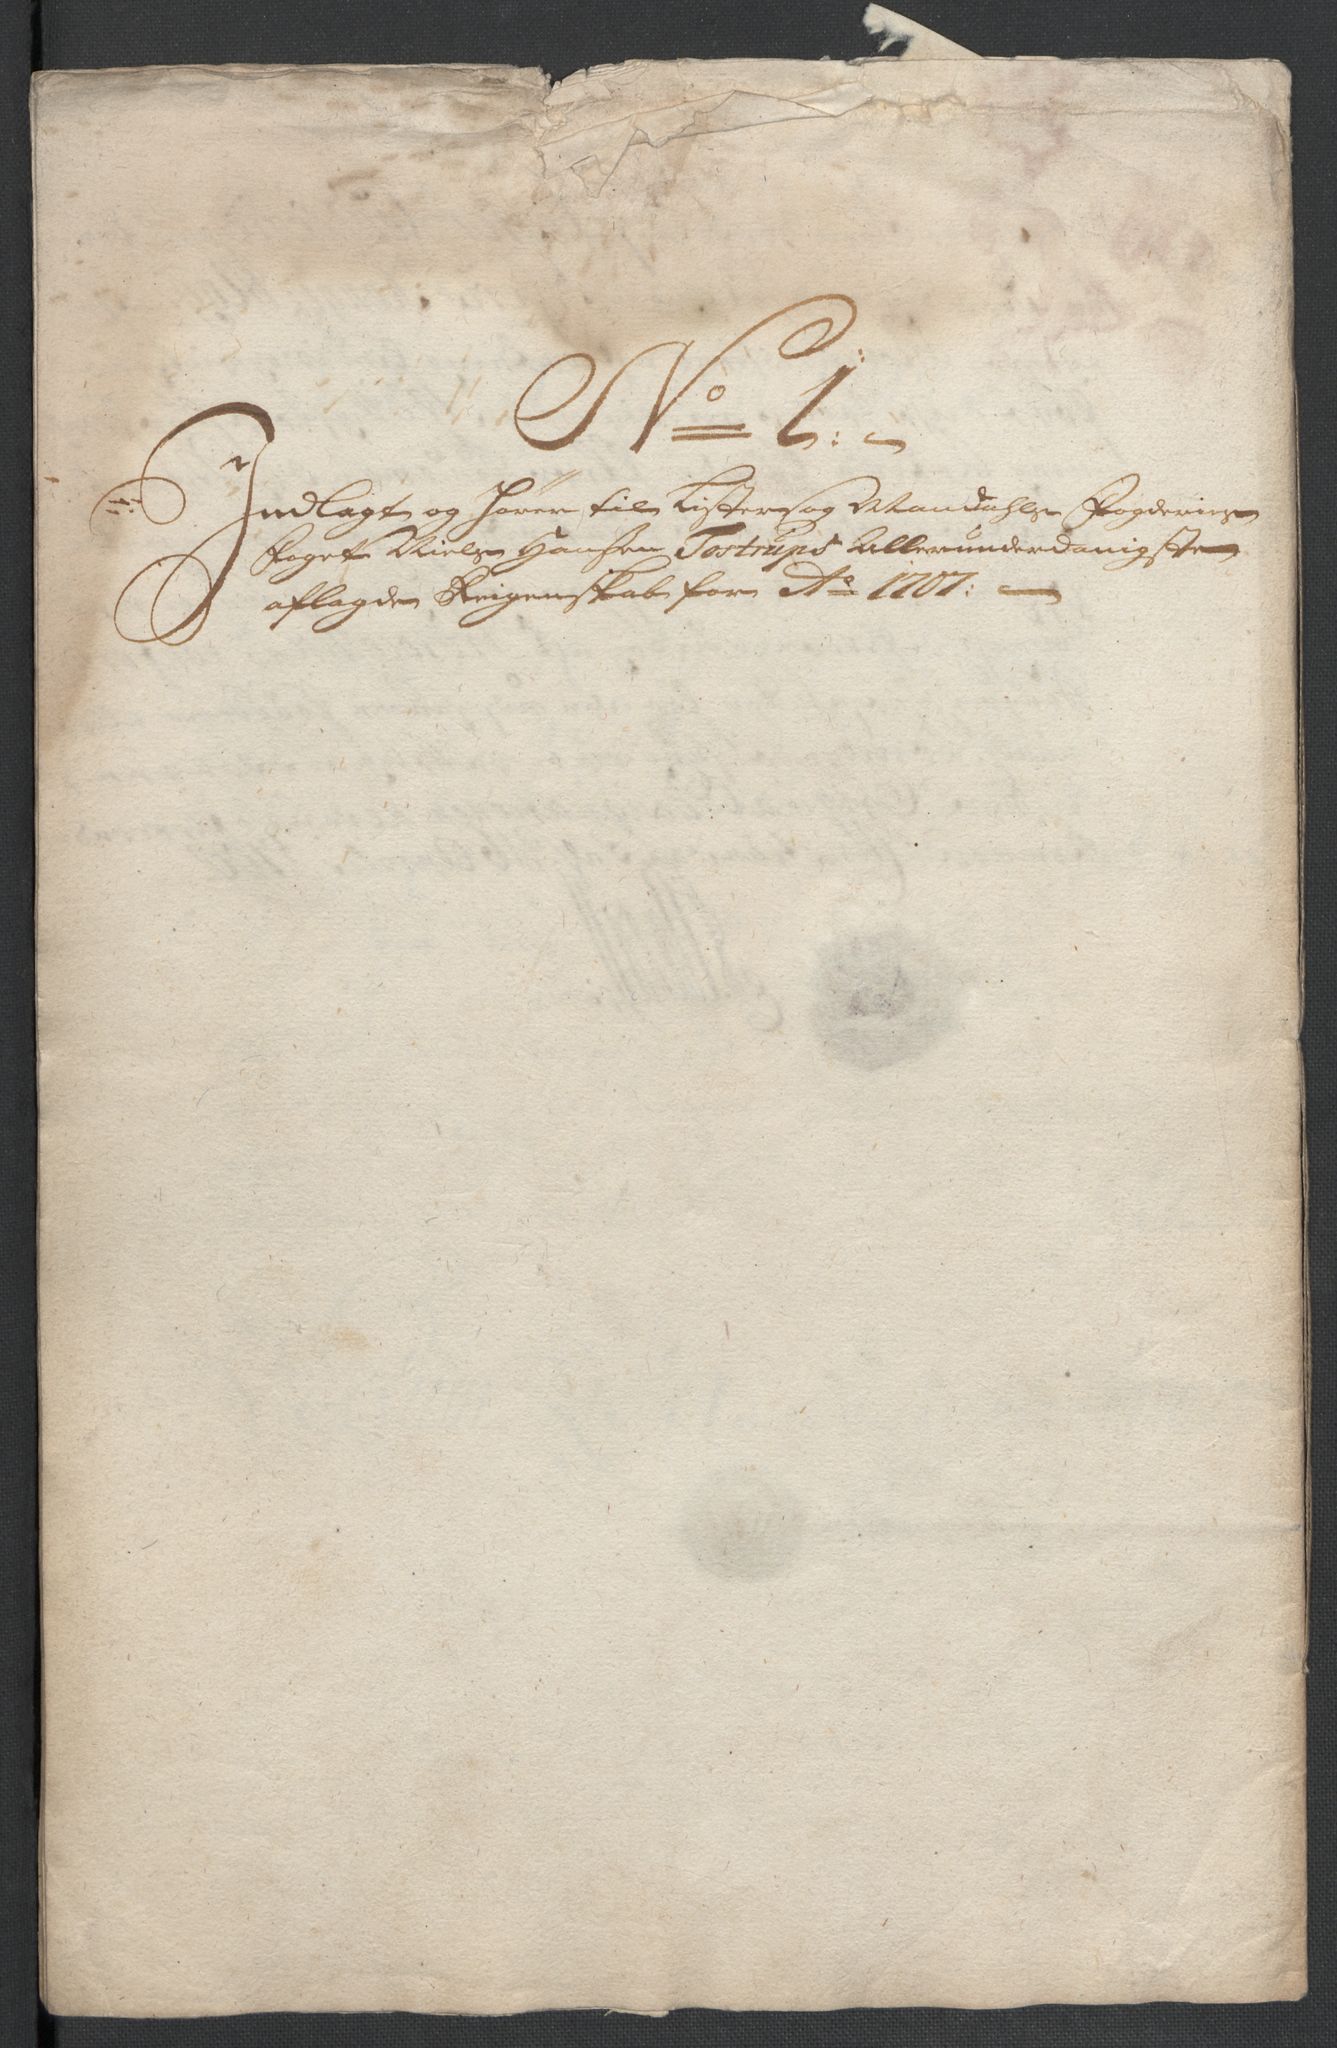 No 1:
Indlagt og hører til Listers og Mandahls Fogderies
Foget Niels Hansen Tostrups Allerunderdanigste
aflagde Reigenskab for Ao 1707: